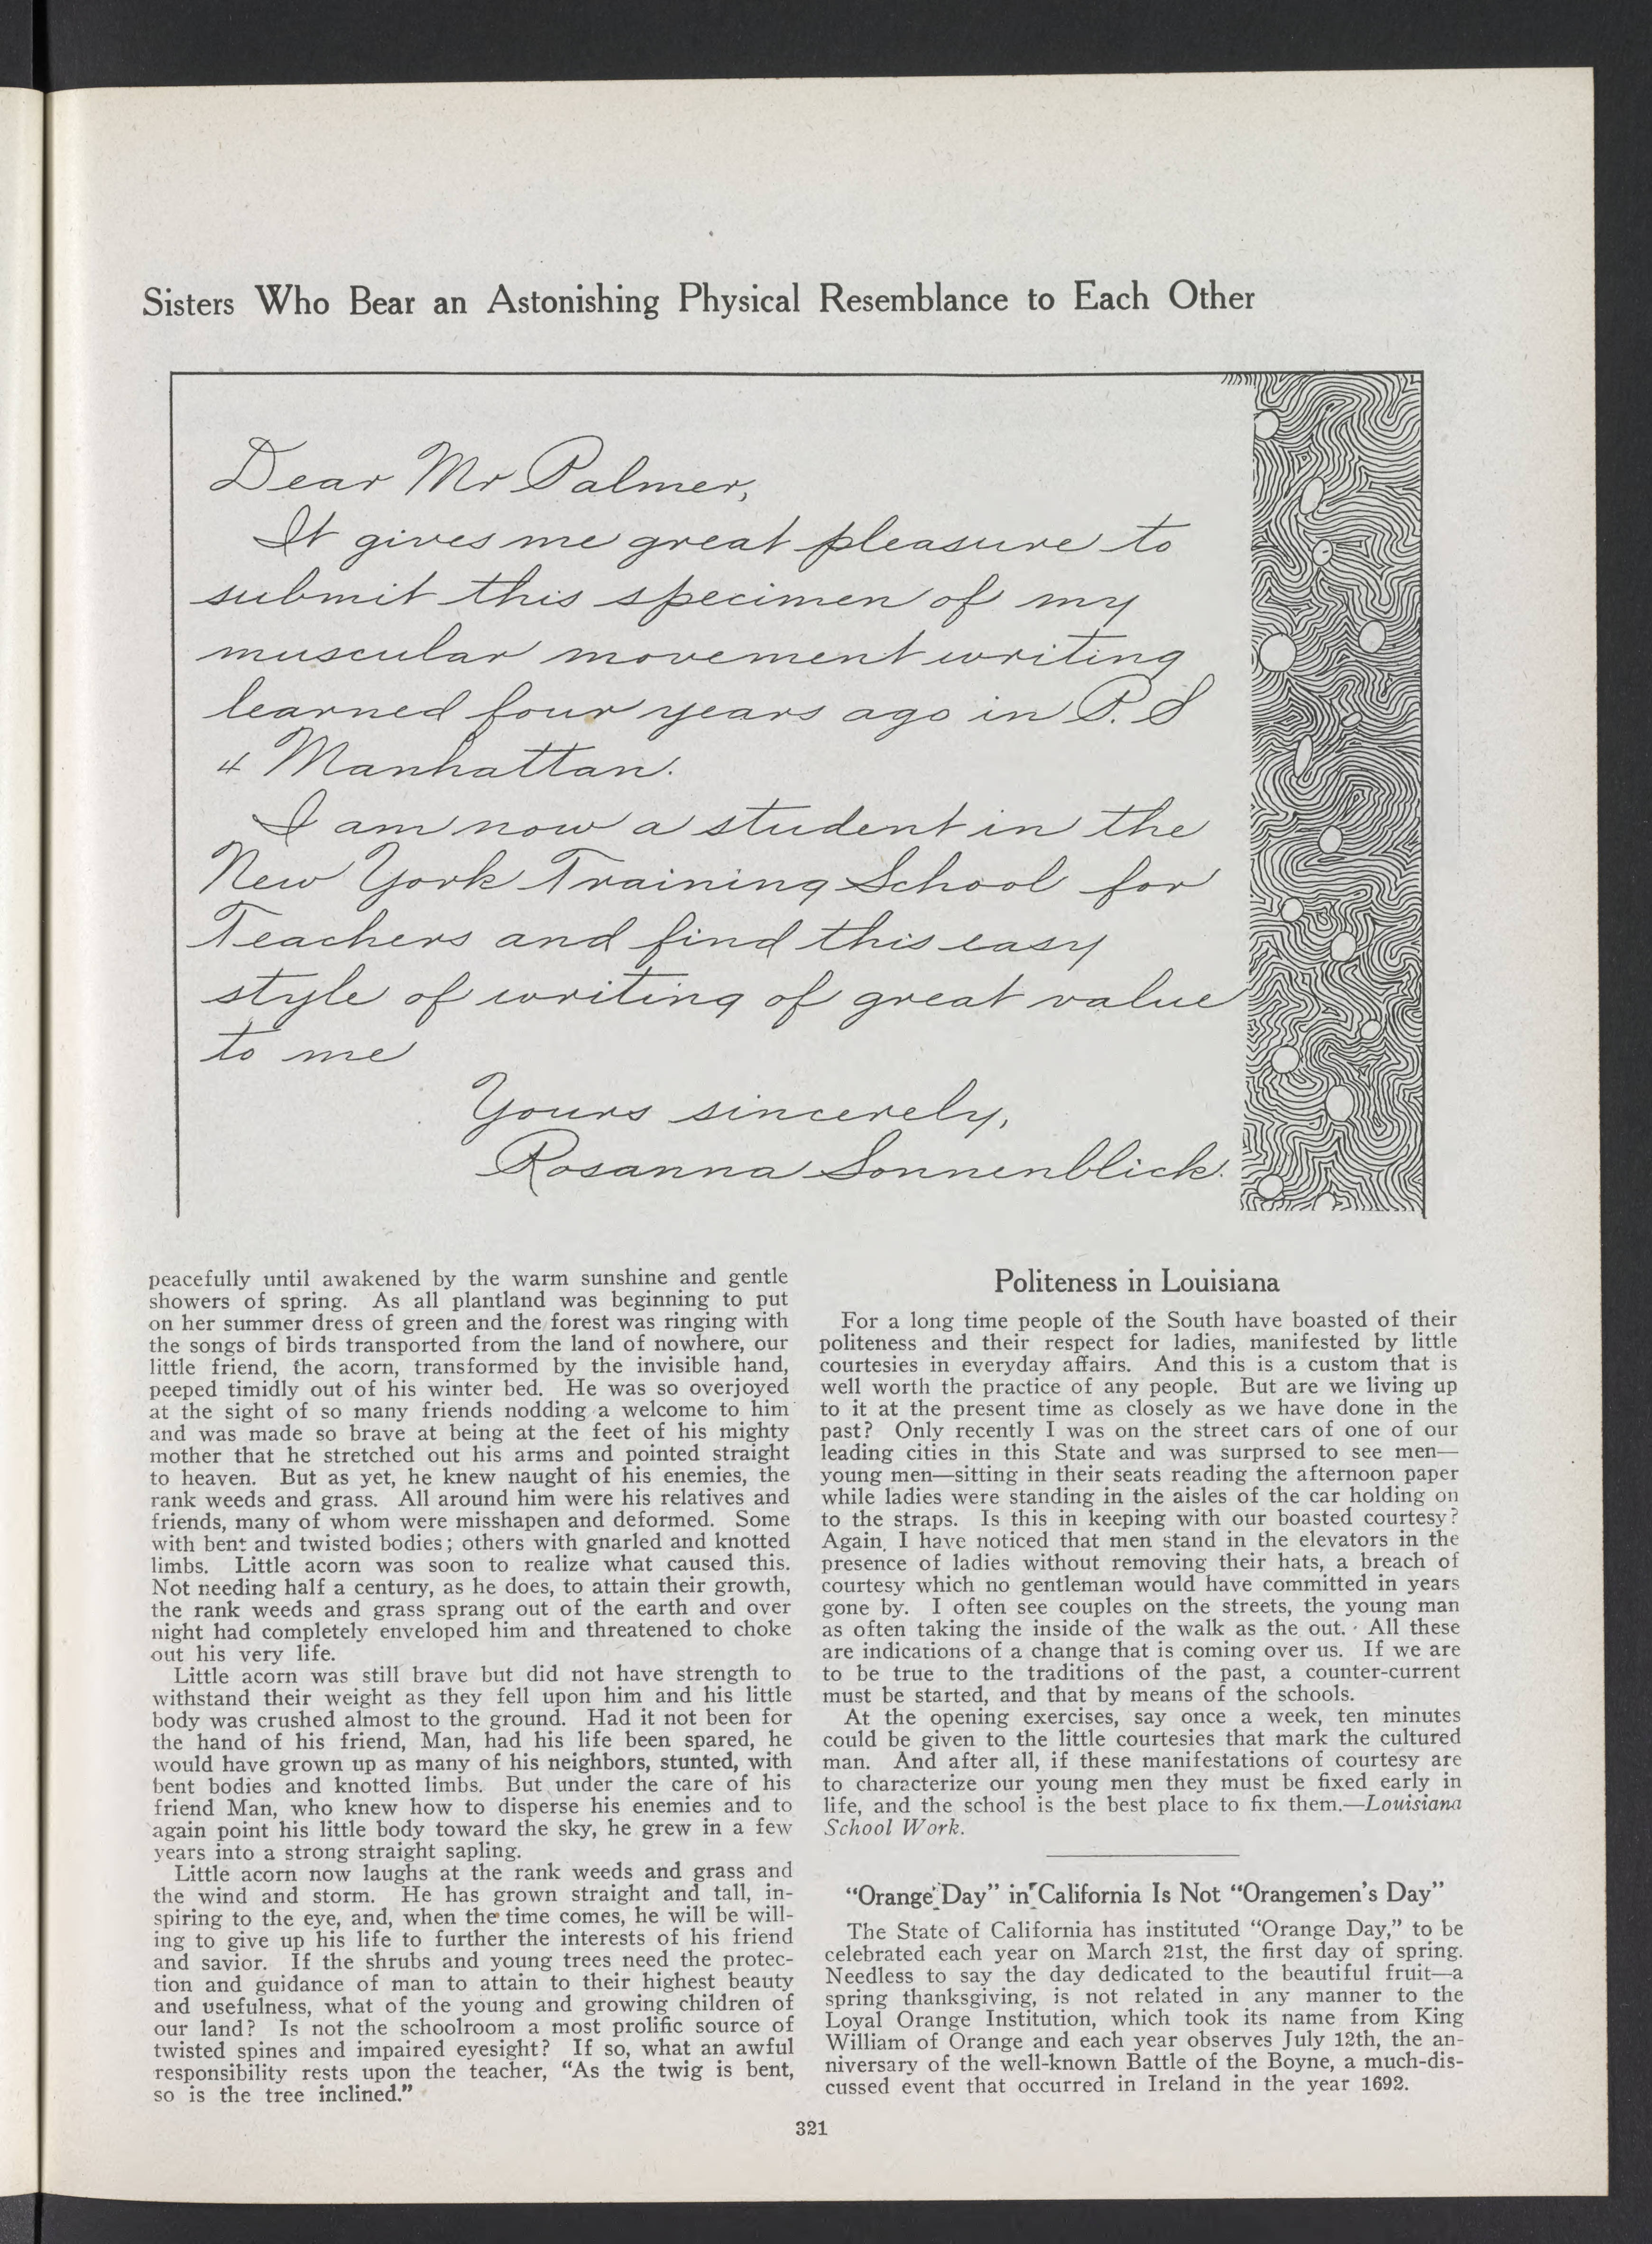 Sisters Who Bear an Astonishing Physical Resemblance to Each Other
Dear Mr Palmer,
It gives me great pleasure to
submit this specimen of my
muscular movement writing
learned four years ago in P. S
4 Manhattan.
I am now a student in the
New York Training School for
Teachers and find this easy
style of writing of great value
to me
Yours sincerely,
Rosanna Sonnenblick.
peacefully until awakened by the warm sunshine and gentle
showers of spring. As all plantland was beginning to put
on her summer dress of green and the forest was ringing with
the songs of birds transported from the land of nowhere, our
little friend, the acorn, transformed by the invisible hand,
peeped timidly out of his winter bed. He was so overjoyed
at the sight of so many friends nodding a welcome to him
and was made so brave at being at the feet of his mighty
mother that he stretched out his arms and pointed straight
to heaven. But as yet, he knew naught of his enemies, the
rank weeds and grass. All around him were his relatives and
friends, many of whom were misshapen and deformed. Some
with bent and twisted bodies; others with gnarled and knotted
limbs. Little acorn was soon to realize what caused this.
Not needing half a century, as he does, to attain their growth,
the rank weeds and grass sprang out of the earth and over
night had completely enveloped him and threatened to choke
out his very life.
Little acorn was still brave but did not have strength to
withstand their weight as they fell upon him and his little
body was crushed almost to the ground. Had it not been for
the hand of his friend, Man, had his life been spared, he
would have grown up as many of his neighbors, stunted, with
bent bodies and knotted limbs. But under the care of his
friend Man, who knew how to disperse his enemies and to
again point his little body toward the sky, he grew in a few
years into a strong straight sapling.
Little acorn now laughs at the rank weeds and grass and
the wind and storm. He has grown straight and tall, in-
spiring to the eye, and, when the time comes, he will be will-
ing to give up his life to further the interests of his friend
and savior. If the shrubs and young trees need the protec-
tion and guidance of man to attain to their highest beauty
and usefulness, what of the young and growing children of
our land? Is not the schoolroom a most prolific source of
twisted spines and impaired eyesight? If so, what an awful
responsibility rests upon the teacher, “As the twig is bent,
so is the tree inclined.”
Politeness in Louisiana
For a long time people of the South have boasted of their
politeness and their respect for ladies, manifested by little
courtesies in everyday affairs. And this is a custom that is
well worth the practice of any people. But are we living up
to it at the present time as closely as we have done in the
past? Only recently I was on the street cars of one of our
leading cities in this State and was surprsed to see men—
young men—sitting in their seats reading the afternoon paper
while ladies were standing in the aisles of the car holding on
to the straps. Is this in keeping with our boasted courtesy?
Again, I have noticed that men stand in the elevators in the
presence of ladies without removing their hats, a breach of
courtesy which no gentleman would have committed in years
gone by. I often see couples on the streets, the young man
as often taking the inside of the walk as the out. All these
are indications of a change that is coming over us. If we are
to be true to the traditions of the past, a counter-current
must be started, and that by means of the schools.
At the opening exercises, say once a week, ten minutes
could be given to the little courtesies that mark the cultured
man. And after all, if these manifestations of courtesy are
to characterize our young men they must be fixed early in
life, and the school is the best place to fix them.—Louisiana
School Work.
“Orange Day” in California Is Not “Orangemen’s Day”
The State of California has instituted “Orange Day,” to be
celebrated each year on March 21st, the first day of spring.
Needless to say the day dedicated to the beautiful fruit—a
spring thanksgiving, is not related in any manner to the
Loyal Orange Institution, which took its name from King
William of Orange and each year observes July 12th, the an-
niversary of the well-known Battle of the Boyne, a much-dis-
cussed event that occurred in Ireland in the year 1692.
321